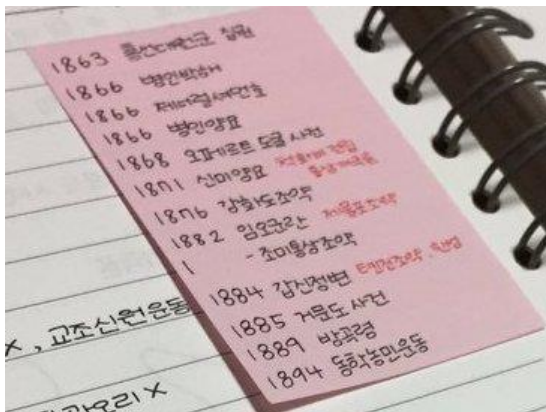 1863 흥선대원군 집권
1866 병인박해
1866 제너럴셔먼호
1866 병인양요
1868 오페르트 도굴 사건
1871 신미양요 척화비 건립
1876 강화도조약
1882 임오군란 제물포조약
1 - 조미통상조약
1884 갑신정변 톈진조약, 한성
1885 거문도 사건
1889 방곡령
1894 동학농민운동
x, 교조신원운동